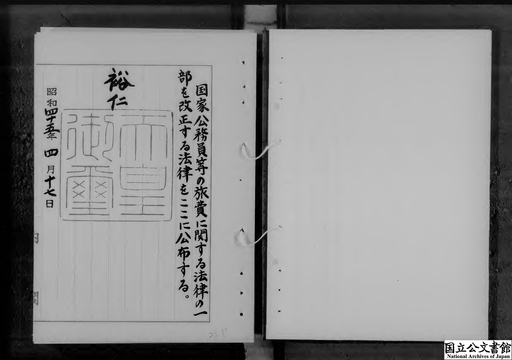 国家公務員等の旅費に関する法律の一
部を改正する法律をここに公布する。
裕仁
天皇
御璽
昭和四十五年四月十七日
内閣
国立公文書館
National Archives of Japan